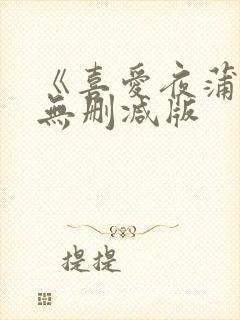 《喜愛夜蒲
無刪減版
提提